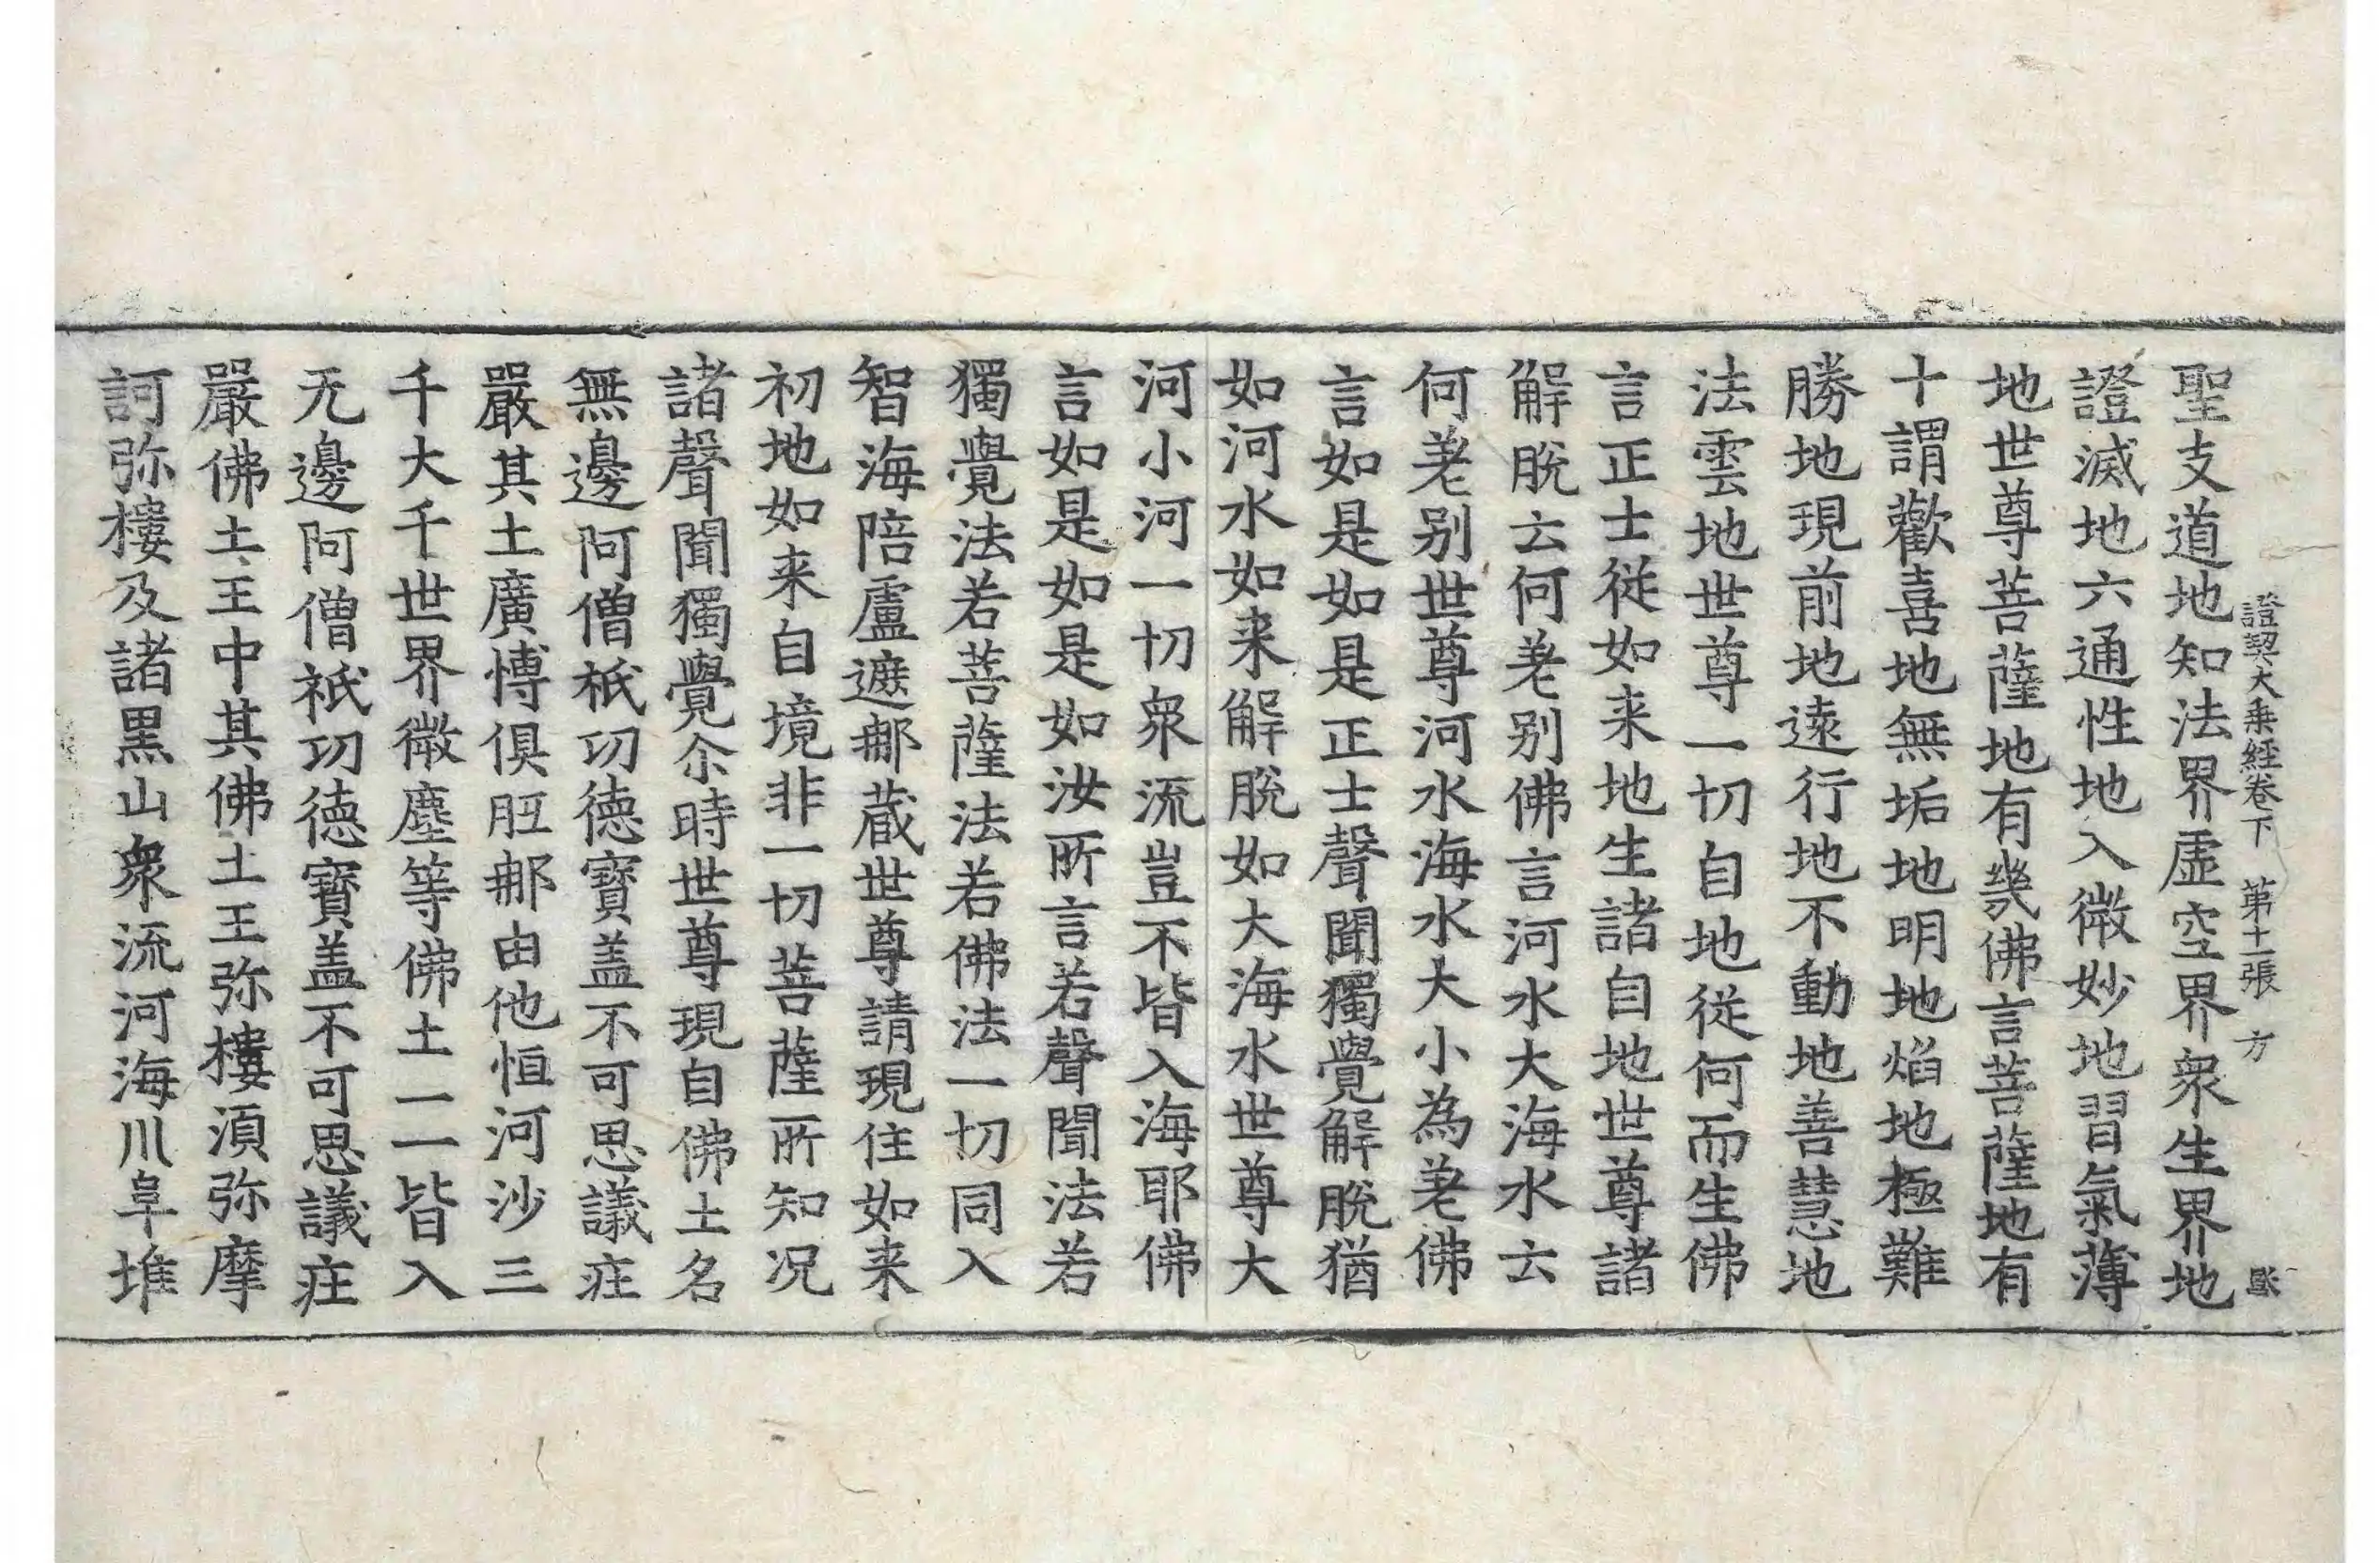 聖支道地知法界虛空界衆生界地
證契大乗經卷下 第十二張 方
證滅地六通性地入微妙地習氣薄
地世尊菩薩地有幾佛言菩薩地有
十謂歡喜地無垢地明地焰地極難
勝地現前地遠行地不動地善慧地
法雲地世尊一切自地從何而生佛
言正士從如来地生諸自地世尊諸
解脫云何差别佛言河水大海水云
何差别世尊河水海水大小為差佛
言如是如是正士聲聞獨覺解脫猶
如河水如来解脫如大海水世尊大
河小河一切衆流豈不皆入海耶佛
言如是如是如汝所言若聲聞法若
獨覺法若菩薩法若佛法一切同入
智海陪盧遮郍蔵世尊請現住如来
初地如来自境非一切菩薩所知况
諸聲聞獨覺尒時世尊現自佛土名
無邊阿僧秖功德寶盖不可思議莊
嚴其土廣博俱胝郍由他恒河沙三
千大千世界微塵等佛土一一皆入
无邊阿僧祇功德寶盖不可思議莊
嚴佛土王中其佛土王弥樓湏弥摩
訶弥樓及諸黒山衆流河海川阜堆